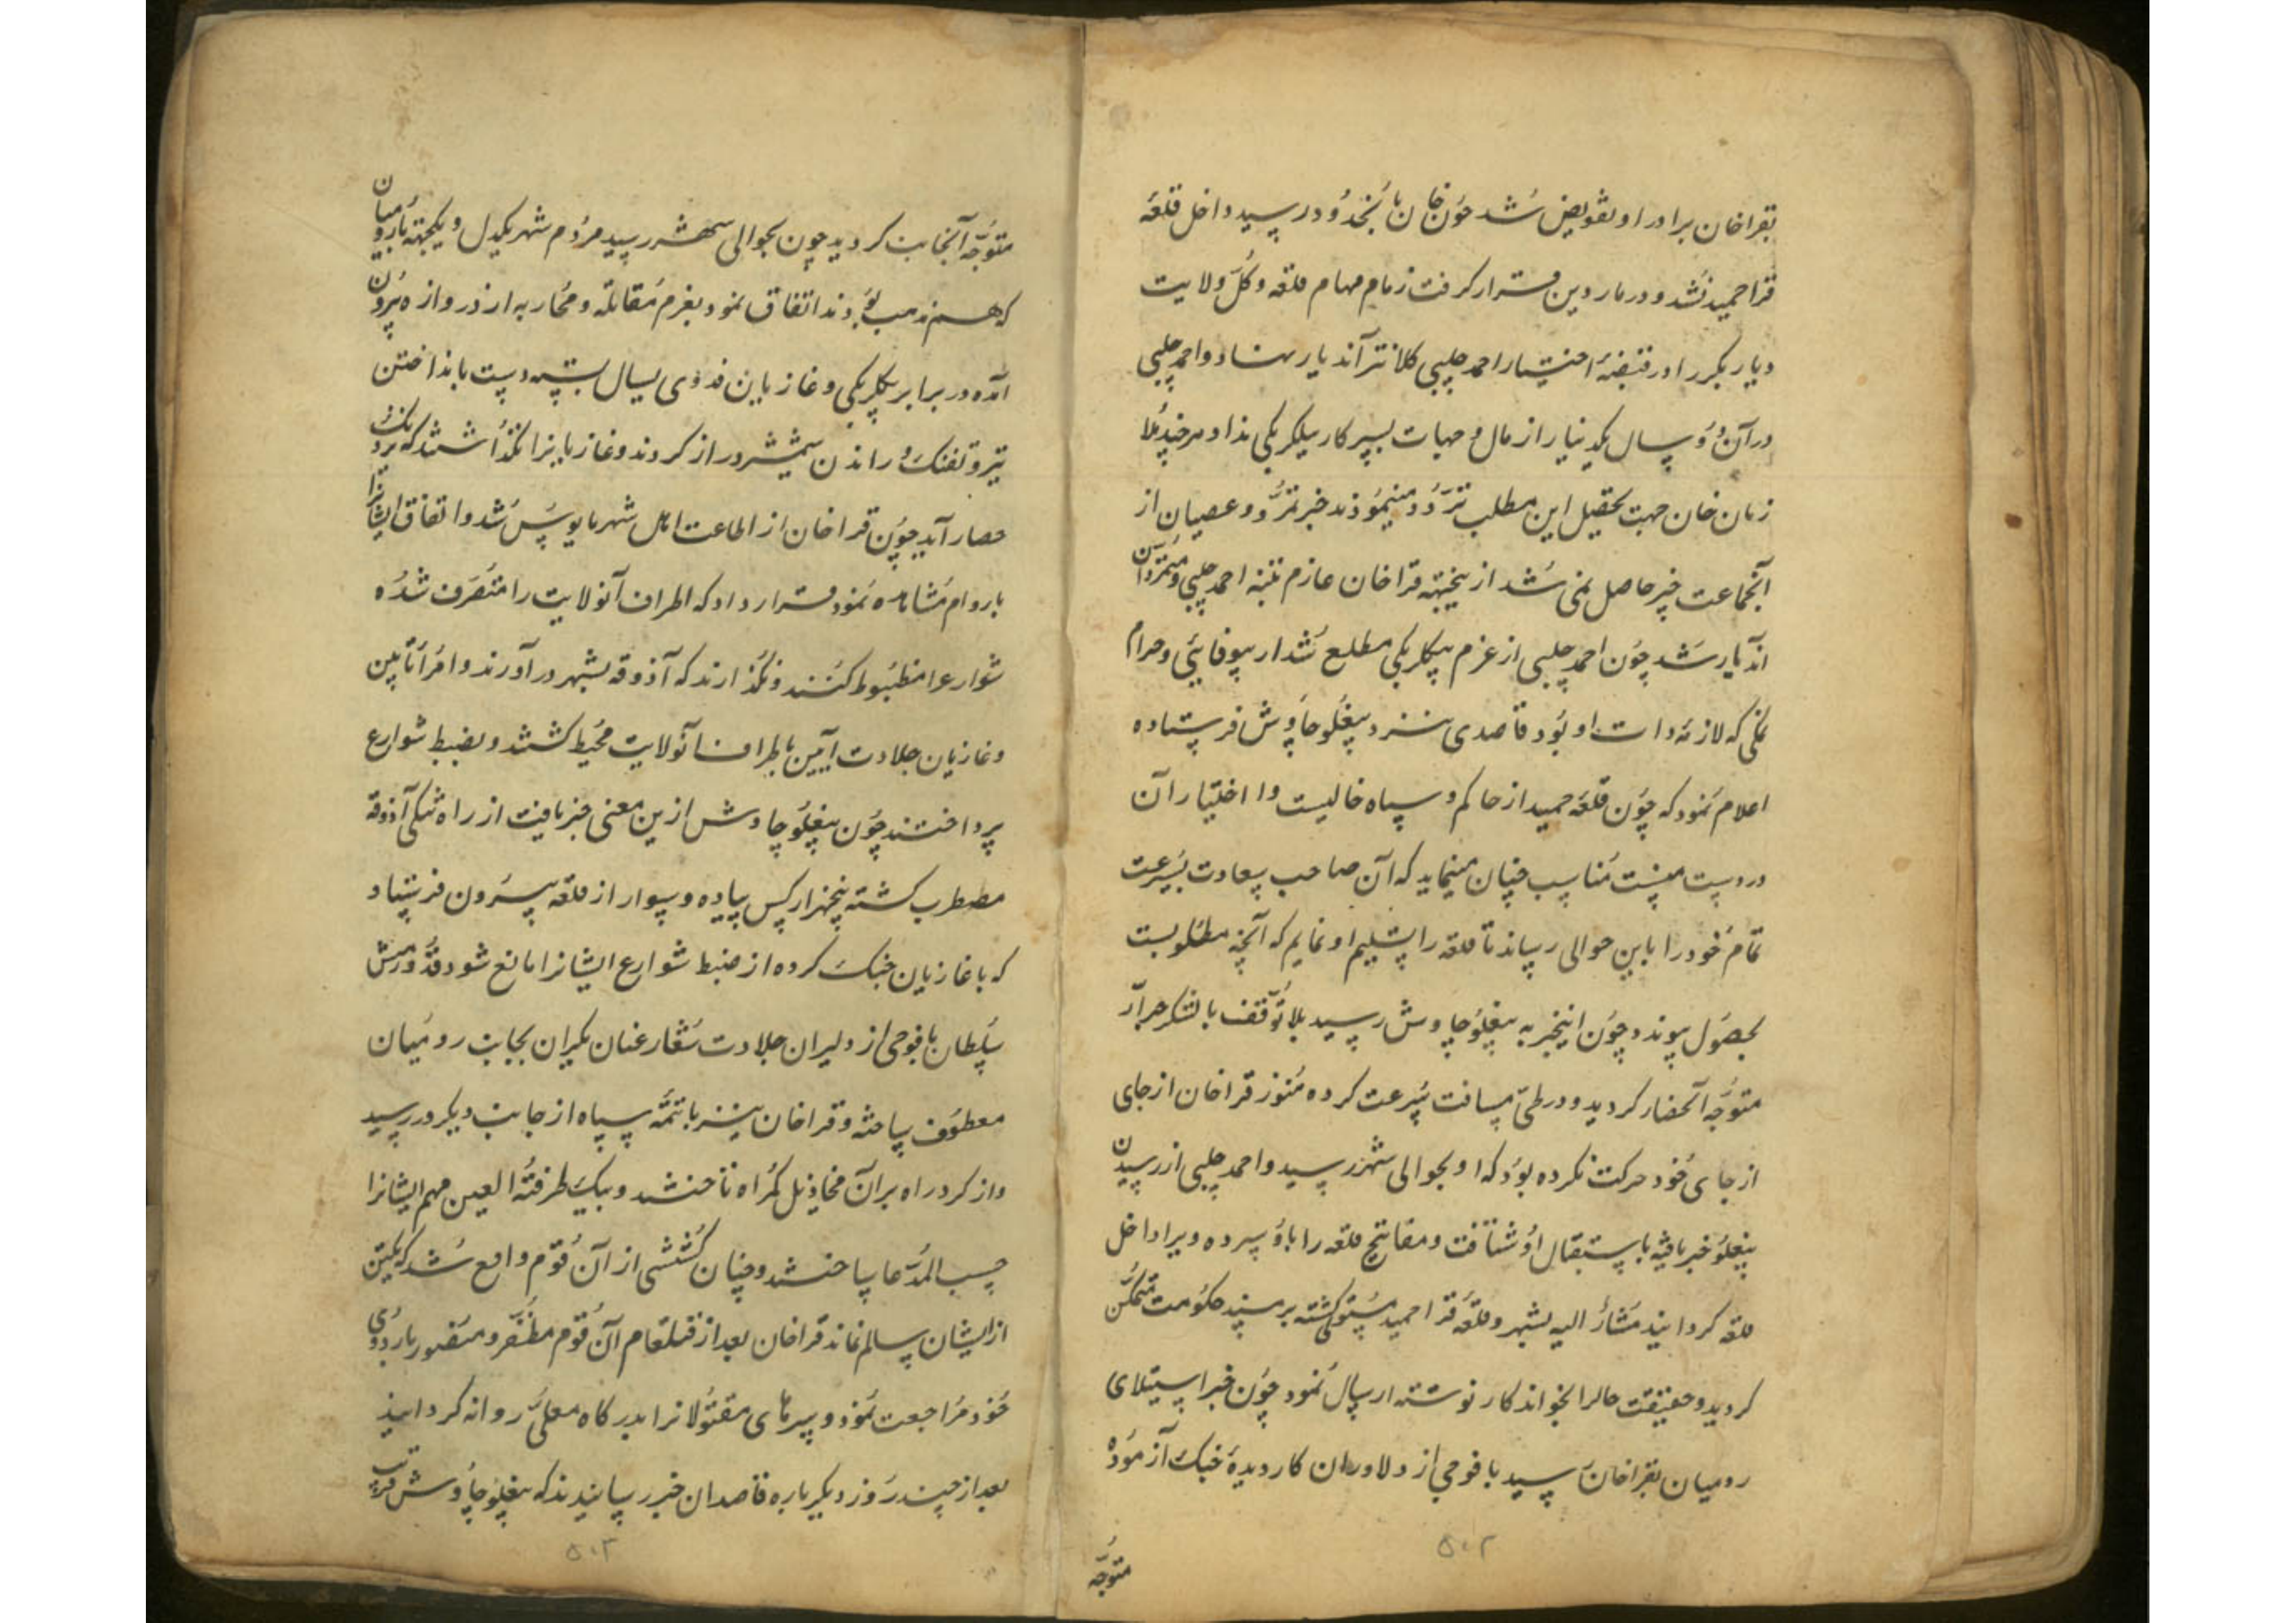 بقراخان برادر او تفویض شد چون خان بانجدود رسید داخل قلعه
قراحمید نشد و در ماردین قرار گرفت زمام مهام قلعه و کل ولایت
دیار بکر را در قبضهٔ اختیار احمد چلبی کلانتر آندیار نهاد و احمد چلبی
در آن دو سال یکدینار از مال و جهات بسرکار بیکلربیکی نداد هرچند ملا
زمان خان جهت تحصیل این مطلب تردد مینمودند خبر تمرد و عصیان از
آنجماعت چیز حاصل نمی شد ازینجهته قراخان عازم تنبه احمد چلبی و متمردان
اندیار شد چون احمد چلبی از عزم بیکلربیکی مطلع شد از بیوفائی و حرام
نمکی که لازمه ذات او بود قاصدی نزد بیغلو چاوش فرستاده
اعلام نمود که چون قلعه حمید از حاکم و سپاه خالیست و اختیار آن
در دست منست مناسب چنان مینماید که آن صاحب سعادت بسرعت
تمام خود را باین حوالی رساند تا قلعه را تسلیم او نمایم که آنچه مطلوبست
بحصول پیوندد چون اینخبر به بیغلو چاوش رسید بلا توقف با لشکر جرار
متوجه آنحصار کردید و در طی مسافت سرعت کرده هنوز قراخان از جای
از جای خود حرکت نکرده بود که او بحوالی شهر رسید و احمد چلبی از رسیدن
بیغلو خبر یافته باستقبال او شتافت و مفاتیح قلعه را باو سپرده ویرا داخل
قلعه کردانید مشار الیه بشهر و قلعه قراحمید مستولی کشته بر مسند حکومت متمکن
کردید و حقیقت حالرا بخواندکار نوشته ارسال نمود چون خبر استیلای
رومیان بقراخان رسید با فوجی از دلاوران کار دیدهٔ جنک آزموده
متوجه
۵۰۲
متوجه آنجانب کردید چون بحوالی شهر رسید مردم شهر یکدل و یکجهته با رومیان
که هم مذهب بودند اتفاق نمود بعزم مقابله و محاربه از دروازه بیرون
آمده در برابر بیکلربیکی و غازیان فدوی یسال بسته دست بانداختن
تیر و تفنک و راندن شمشیر دراز کردند و غازیانرا نکذاشتند که نزدیک
حصار آید چون قراخان از اطاعت اهل شهر مایوس شد و اتفاق ایشانرا
باروام مشاهده نمود قرار داد که اطراف آنولایت را متصرف شده
شوارعرا مضبوط کنند و نکذارند که آذوقه بشهر درآورند و امرا تابین
و غازیان جلادت آیین باطراف آنولایت محیط کشتند و بضبط شوارع
پرداختند چون بیغلو چاوش ازین معنی خبر یافت از راه تنکی آذوقه
مضطرب کشته پنجهزار کس پیاده و سوار از قلعه بیرون فرستاد
که با غازیان جنک کرده از ضبط شوارع ایشانرا مانع شود قدورمش
سلطان با فوجی از دلیران جلادت شعار عنان یکران بجانب رومیان
معطوف ساخته و قراخان نیز با تتمه سپاه از جانب دیکر در رسید
و از کرد راه بر آن مخاذیل کمراه تاختند و بیک طرفته العین مهم ایشانرا
حسب المدعا ساختند و چنان کششی از آن قوم واقع شد که یکتن
از ایشان سالم نماند قراخان بعد از قتلعام آن قوم مظفر و منصور باردوی
خود مراجعت نمود و سرهای مقتولانرا بدرکاه معلی روانه کردانید
بعد از چند روز دیکر باره قاصدان خبر رسانیدند که بیغلو چاوش قریب
۵۰۳